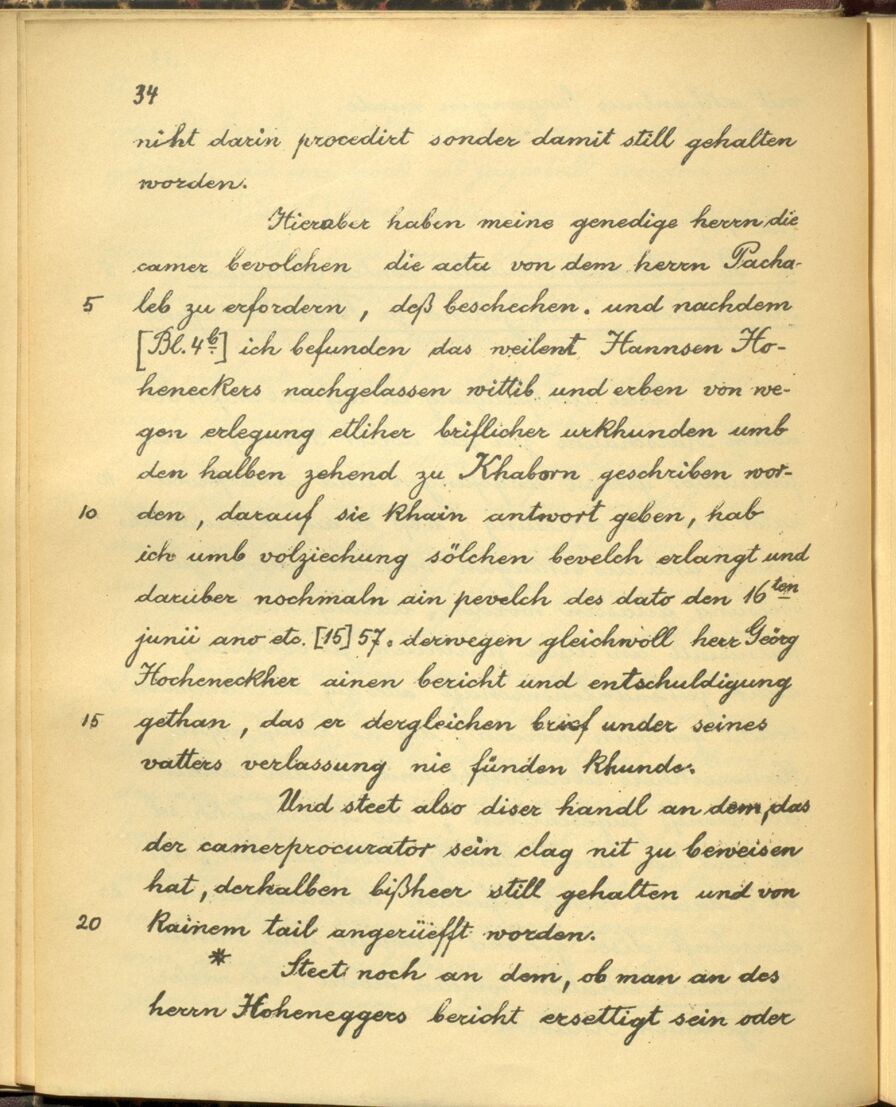 34
niht darin procedirt sonder damit still gehalten
worden.
Hieraber haben meine genedige herrn die
camer bevolchen die acta von dem herrn Pacha-
5 leb zu erfordern, deß beschechen. und nachdem
[Bl. 4b] ich befunden das weilent Hannsen Ho-
heneckers nachgelassen wittib und erben von we-
gen erlegung etliher briflicher urkhunden umb
den halben zehend zu Khaborn geschriben wor-
10 den, darauf sie khain antwort geben, hab
ich umb volziechung sölchen bevelch erlangt und
darüber nochmaln ain pevelch des dato den 16ten
junii ano etc. [15]57. derwegen gleichwoll herr Geörg
Hocheneckher ainen bericht und entschuldigung
15 gethan, das er dergleichen brief under seines
vatters verlassung nie fünden khunde.
Und steet also diser handl an dem, das
der camerprocurator sein clag nit zu beweisen
hat, derhalben bißheer still gehalten und von
20 kainem tail angerüefft worden.
* Steet noch an dem, ob man an des
herrn Hoheneggers bericht ersettigt sein oder